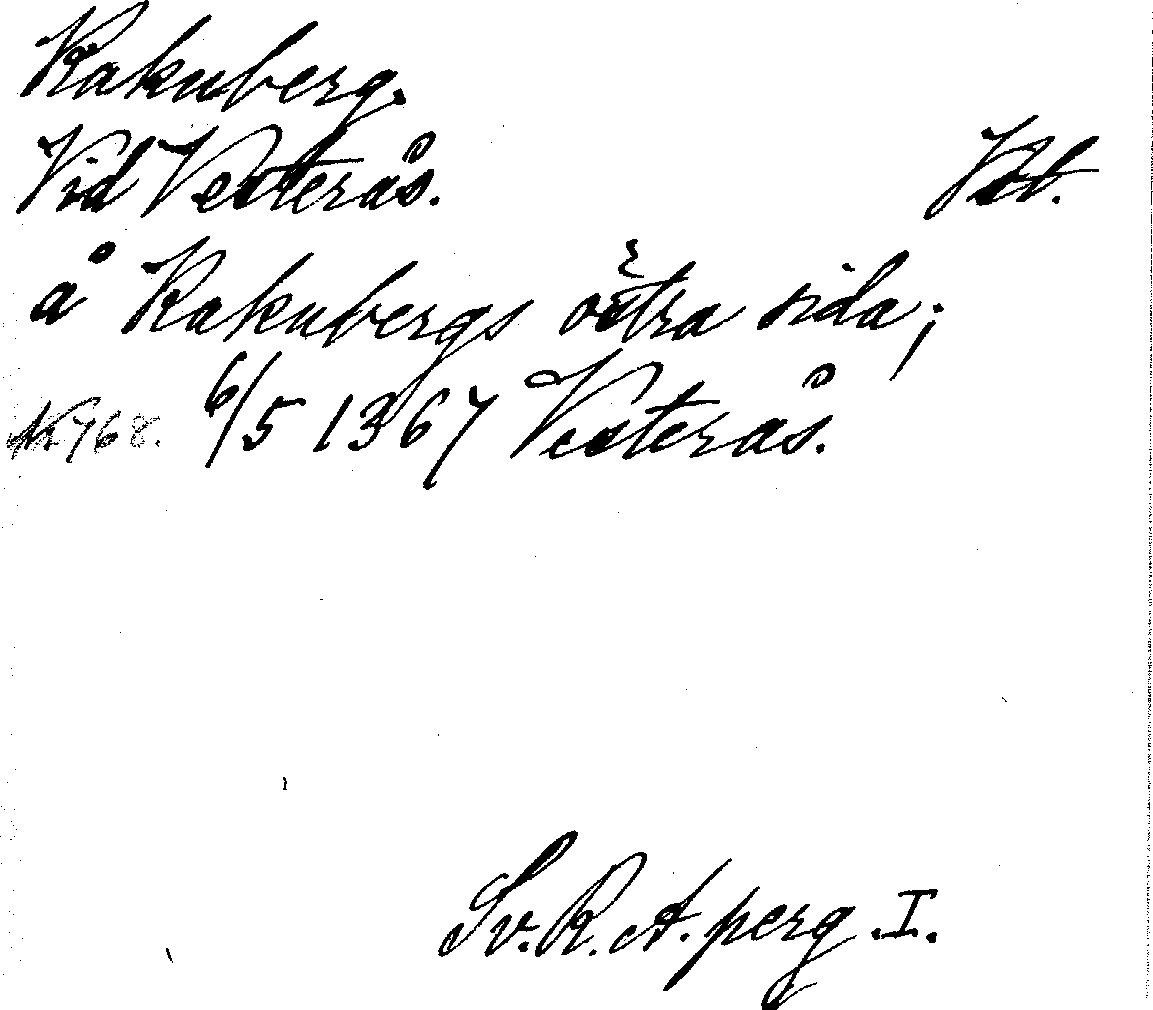 Rakuberg.
Vid Vesterås.
å Rakubergs östra sida;
No 768. 6/5 1367 Vesterås.
Sv. R. A. perg. I.